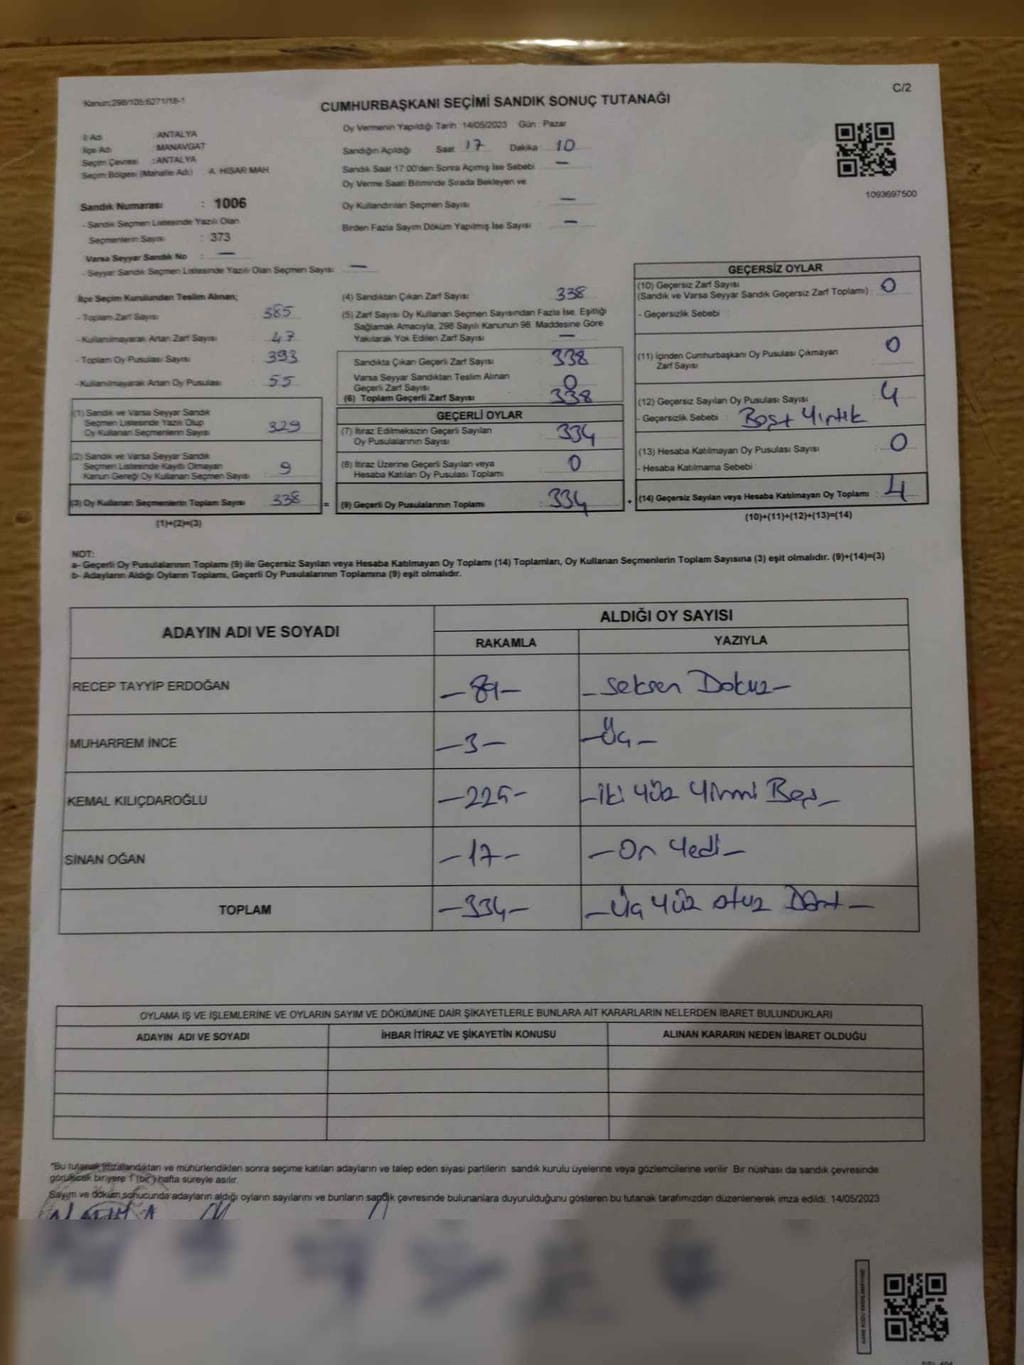 Kanun:298/105;6271/18-1
C/2
CUMHURBAŞKANI SEÇİMİ SANDIK SONUÇ TUTANAĞI
İl Adı :ANTALYA
İlçe Adı :MANAVGAT
Seçim Çevresi :ANTALYA
Seçim Bölgesi (Mahalle Adı) A. HİSAR MAH
Sandık Numarası : 1006
- Sandık Seçmen Listesinde Yazılı Olan
Seçmenlerin Sayısı : 373
Varsa Seyyar Sandık No : —
- Seyyar Sandık Seçmen Listesinde Yazılı Olan Seçmen Sayısı : —
Oy Vermenin Yapıldığı Tarih :14/05/2023 Gün : Pazar
Sandığın Açıldığı Saat 17 Dakika 10
Sandık Saat 17:00'den Sonra Açılmış İse Sebebi —
Oy Verme Saati Bitiminde Sırada Bekleyen ve
Oy Kullandırılan Seçmen Sayısı —
Birden Fazla Sayım Döküm Yapılmış İse Sayısı —
1093697500
İlçe Seçim Kurulundan Teslim Alınan;
- Toplam Zarf Sayısı : 385
- Kullanılmayarak Artan Zarf Sayısı : 47
- Toplam Oy Pusulası Sayısı : 393
- Kullanılmayarak Artan Oy Pusulası : 55
(1) Sandık ve Varsa Seyyar Sandık
Seçmen Listesinde Yazılı Olup
Oy Kullanan Seçmenlerin Sayısı : 329
(2) Sandık ve Varsa Seyyar Sandık
Seçmen Listesinde Kayıtlı Olmayan
Kanun Gereği Oy Kullanan Seçmen Sayısı : 9
(3) Oy Kullanan Seçmenlerin Toplam Sayısı : 338 =
(1)+(2)=(3)
(4) Sandıktan Çıkan Zarf Sayısı : 338
(5) Zarf Sayısı Oy Kullanan Seçmen Sayısından Fazla İse, Eşitliği
Sağlamak Amacıyla, 298 Sayılı Kanunun 98. Maddesine Göre
Yakılarak Yok Edilen Zarf Sayısı : —
Sandıkta Çıkan Geçerli Zarf Sayısı : 338
Varsa Seyyar Sandıktan Teslim Alınan
Geçerli Zarf Sayısı : 0
(6) Toplam Geçerli Zarf Sayısı : 338
GEÇERLİ OYLAR
(7) İtiraz Edilmeksizin Geçerli Sayılan
Oy Pusulalarının Sayısı : 334
(8) İtiraz Üzerine Geçerli Sayılan veya
Hesaba Katılan Oy Pusulası Toplamı : 0
(9) Geçerli Oy Pusulalarının Toplamı : 334 +
GEÇERSİZ OYLAR
(10) Geçersiz Zarf Sayısı : 0
(Sandık ve Varsa Seyyar Sandık Geçersiz Zarf Toplamı)
- Geçersizlik Sebebi
(11) İçinden Cumhurbaşkanı Oy Pusulası Çıkmayan : 0
Zarf Sayısı
(12) Geçersiz Sayılan Oy Pusulası Sayısı : 4
- Geçersizlik Sebebi : Boş+Yırtık
(13) Hesaba Katılmayan Oy Pusulası Sayısı : 0
- Hesaba Katılmama Sebebi
(14) Geçersiz Sayılan veya Hesaba Katılmayan Oy Toplamı : 4
(10)+(11)+(12)+(13)=(14)
NOT:
a- Geçerli Oy Pusulalarının Toplamı (9) ile Geçersiz Sayılan veya Hesaba Katılmayan Oy Toplamı (14) Toplamları, Oy Kullanan Seçmenlerin Toplam Sayısına (3) eşit olmalıdır. (9)+(14)=(3)
b- Adayların Aldığı Oyların Toplamı, Geçerli Oy Pusulalarının Toplamına (9) eşit olmalıdır.
ADAYIN ADI VE SOYADI ALDIĞI OY SAYISI
RAKAMLA YAZIYLA
RECEP TAYYİP ERDOĞAN —89— —Seksen Dokuz—
MUHARREM İNCE —3— —Üç—
KEMAL KILIÇDAROĞLU —225— —İki Yüz Yirmi Beş—
SİNAN OĞAN —17— —On Yedi—
TOPLAM —334— —Üç Yüz Otuz Dört—
OYLAMA İŞ VE İŞLEMLERİNE VE OYLARIN SAYIM VE DÖKÜMÜNE DAİR ŞİKAYETLERLE BUNLARA AİT KARARLARIN NELERDEN İBARET BULUNDUKLARI
ADAYIN ADI VE SOYADI İHBAR İTİRAZ VE ŞİKAYETİN KONUSU ALINAN KARARIN NEDEN İBARET OLDUĞU
*Bu tutanak imzalandıktan ve mühürlendikten sonra seçime katılan adayların ve talep eden siyasi partilerin sandık kurulu üyelerine veya gözlemcilerine verilir. Bir nüshası da sandık çevresinde
görülecek bir yere 1 (bir) hafta süreyle asılır.
Sayım ve döküm sonucunda adayların aldığı oyların sayılarını ve bunların sandık çevresinde bulunanlara duyurulduğunu gösteren bu tutanak tarafımızdan düzenlenerek imza edildi. 14/05/2023